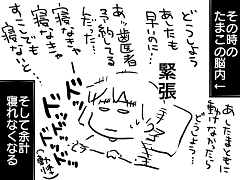 その時の
たまこの脳内↓
どうしよう
あしたも
早いのに…
あッ歯医者
予約してる
んだった…
寝なきゃ
寝なきゃ
すこしでも
寝ないと…
緊張
ドッドッドッ
(動悸)
あしたまともに
動けなかったら
どうしよう…
そして余計
寝れなくなる